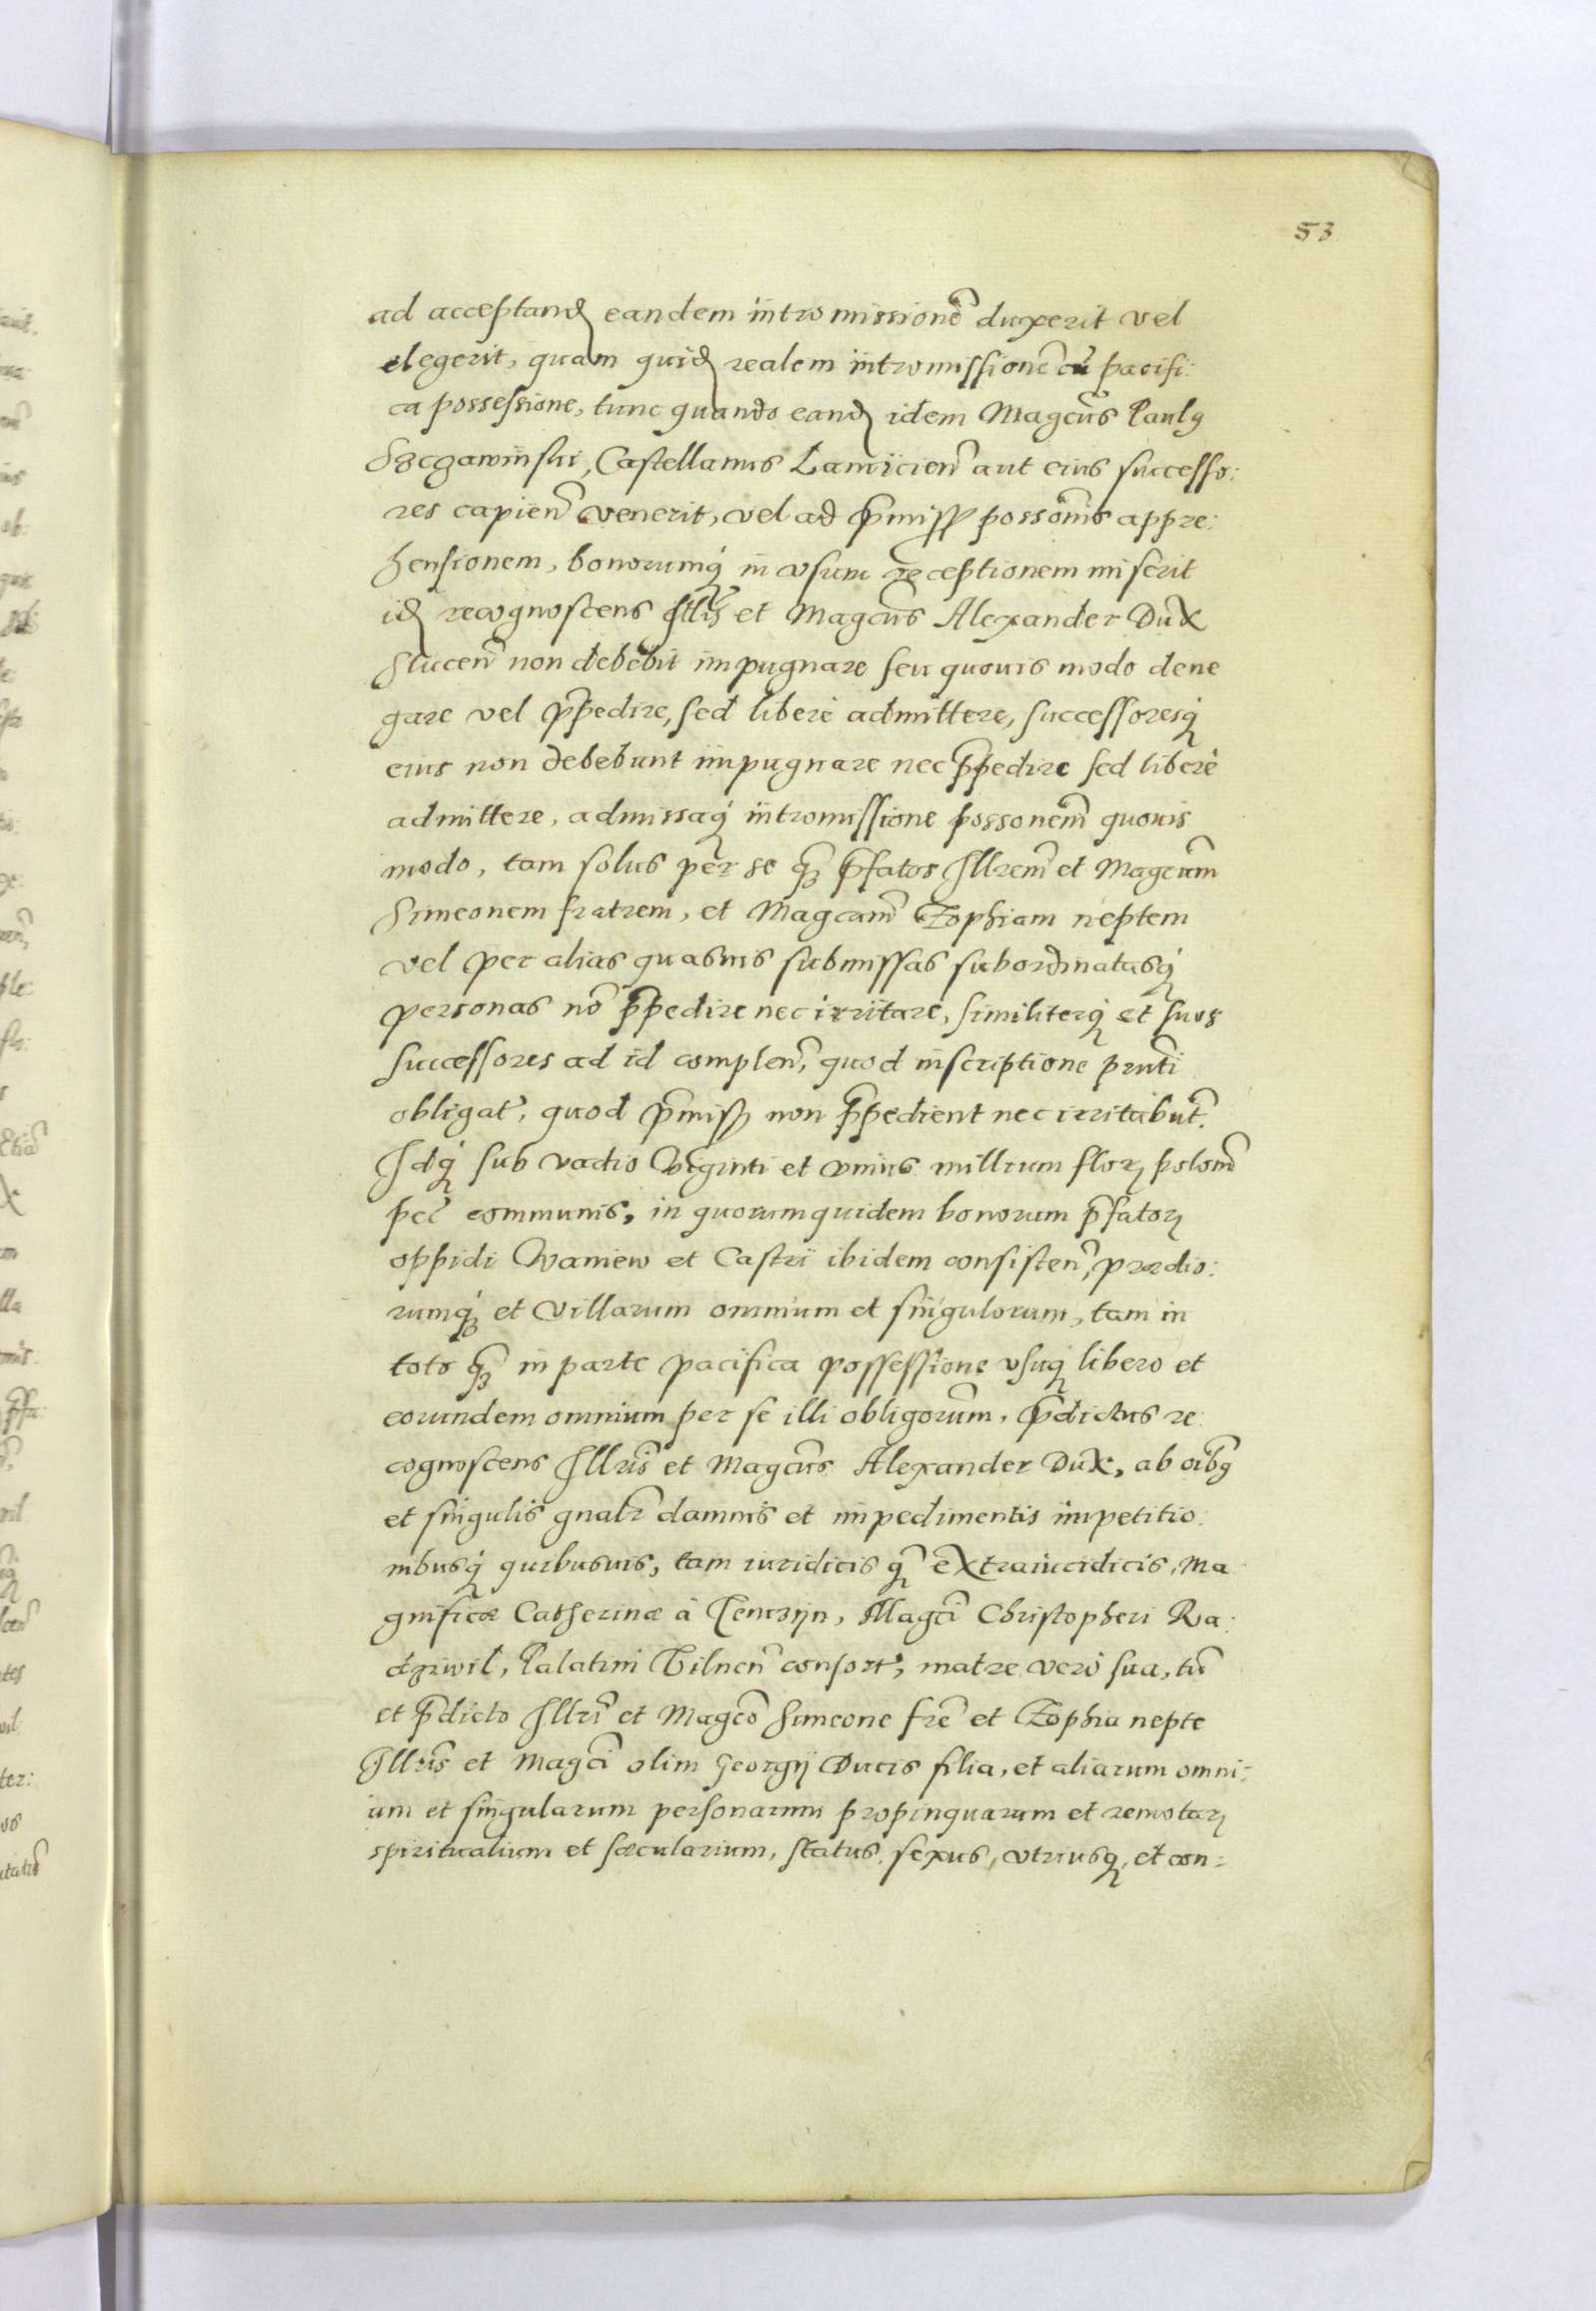 53
ad acceptand eandem intromissionē duxerit vel
elegerit, quam quid realem intromissionē cū pacifi:
ca possessione, tunc quando eand idem Magcūs Paulꝰ
Szczawinski, Castellanus Lanicien̄ aut eius successo:
res capien̄ venerit, vel ad p̄miss possonis appre:
hensionem, bonorumq̨ in vsum receptionem miserit
id recognoscens Illris et Magcūs Alexander Dux
Slucen̄ non debebit impugnare seu quouis modo dene
gare vel p̄pedire, sed liberè admittere, successoresq̨
eius non debebunt impugnare nec p̄pedire sed liberè
admittere, admissaq̨ intromissione possonem̄ quouis
modo, tam solus per se q̄ȝ p̄fatos Illrem̄ et Magcum̄
Simeonem fratrem, et Magcam̄ Zophiam neptem
vel per alias quasuis submissas subordinatasq̨
personas nō p̄pedire nec irritare, similiterq̨ et suos
successores ad id complen̄, quod inscriptione prn̄ti
obligat, quod p̄miss non p̄pedient nec irritabūt.
Idq̨ sub vadio Viginti et vnius millium florꝝ polon̄
pec̄ communis, in quorumquidem bonorum p̄fatorꝝ
oppidi Waniew et Castri ibidem consisten̄, prædio:
rumqȝ et Villarum omnium et singulorum, tam in
toto q̄ȝ in parte pacifica possessione vsuq̨ libero et
eorundem omnium per se illi obligorum̄, p̄dictus re:
cognoscens Illris̄ et Magcūs Alexander Dux, ab oībꝰ
et singulis gnalr̄ damnis et impedimentis impetitio:
nibusq̨ quibusuis, tam iuridicis q̄ȝ extraiucidicis, Ma
gnificæ Catherinæ à Tenczijn, Magcī Christopheri Ra:
dziwil, Palatini Vilnen̄ consort, matre verò sua, tū
et p̄dicto Illrī et Magcō Simeone frē et Zophia nepte
Illris̄ et Magcī olim Georgij Ducis filia, et aliarum omni:
um et singularum personarum propinquarum et remotarꝝ
spiritualium et sæcularium, status, sexus, vtriusq̨, et con: